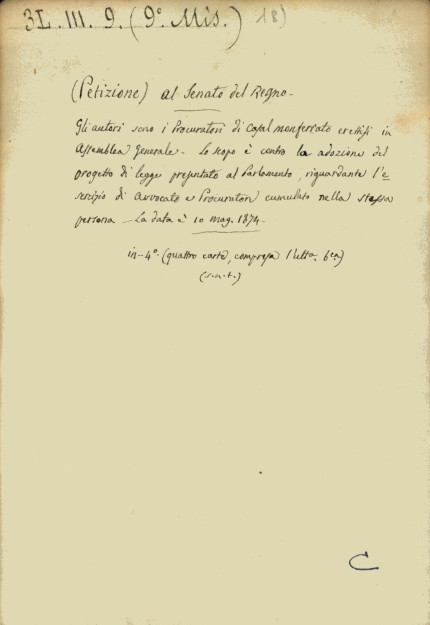 3L. III. 9. (9° Mis.) 18)
(Petizione) al Senato del Regno.
Gli autori sono i Procuratori di Casal monferrato erettisi in
Assemblea Generale. Lo scopo è contro la adozione del
progetto di legge presentato al Parlamento, riguardante l'e
sercizio di avvocato e Procuratori cumulato nella stessa
persona – La data è 10 mag. 1874.
in-4°. (quattro carte, compresa l'ulta. bca)
(s.n.t.)
C